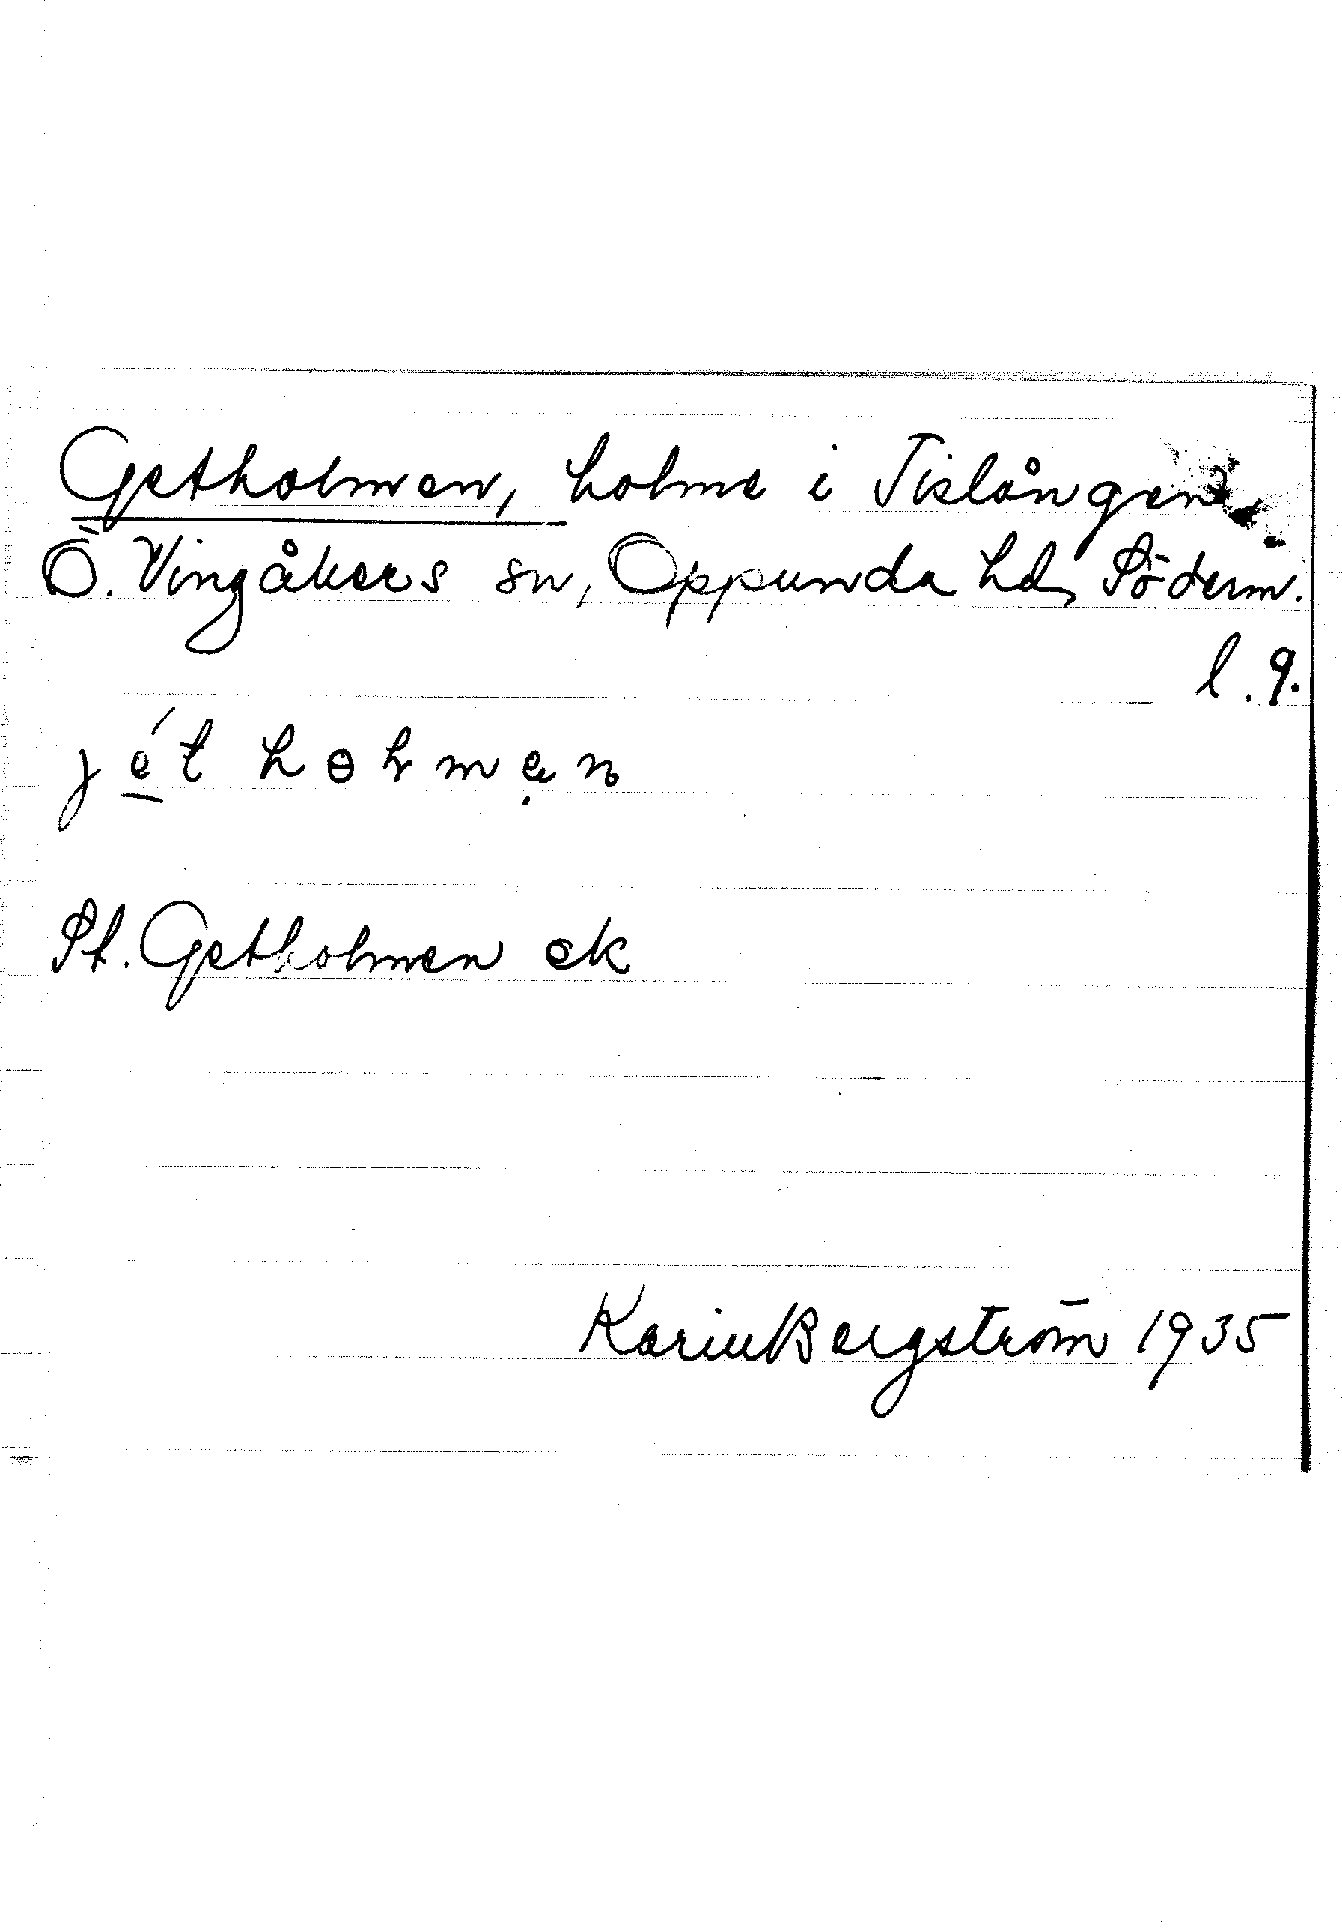 Getholmen, holme i Tislången,
Ö. Vingåkers sn, Oppunda hd, Söderm.
l. 9.
jét hɵlmen
St. Getholmen ek
Karin Bergström 1935